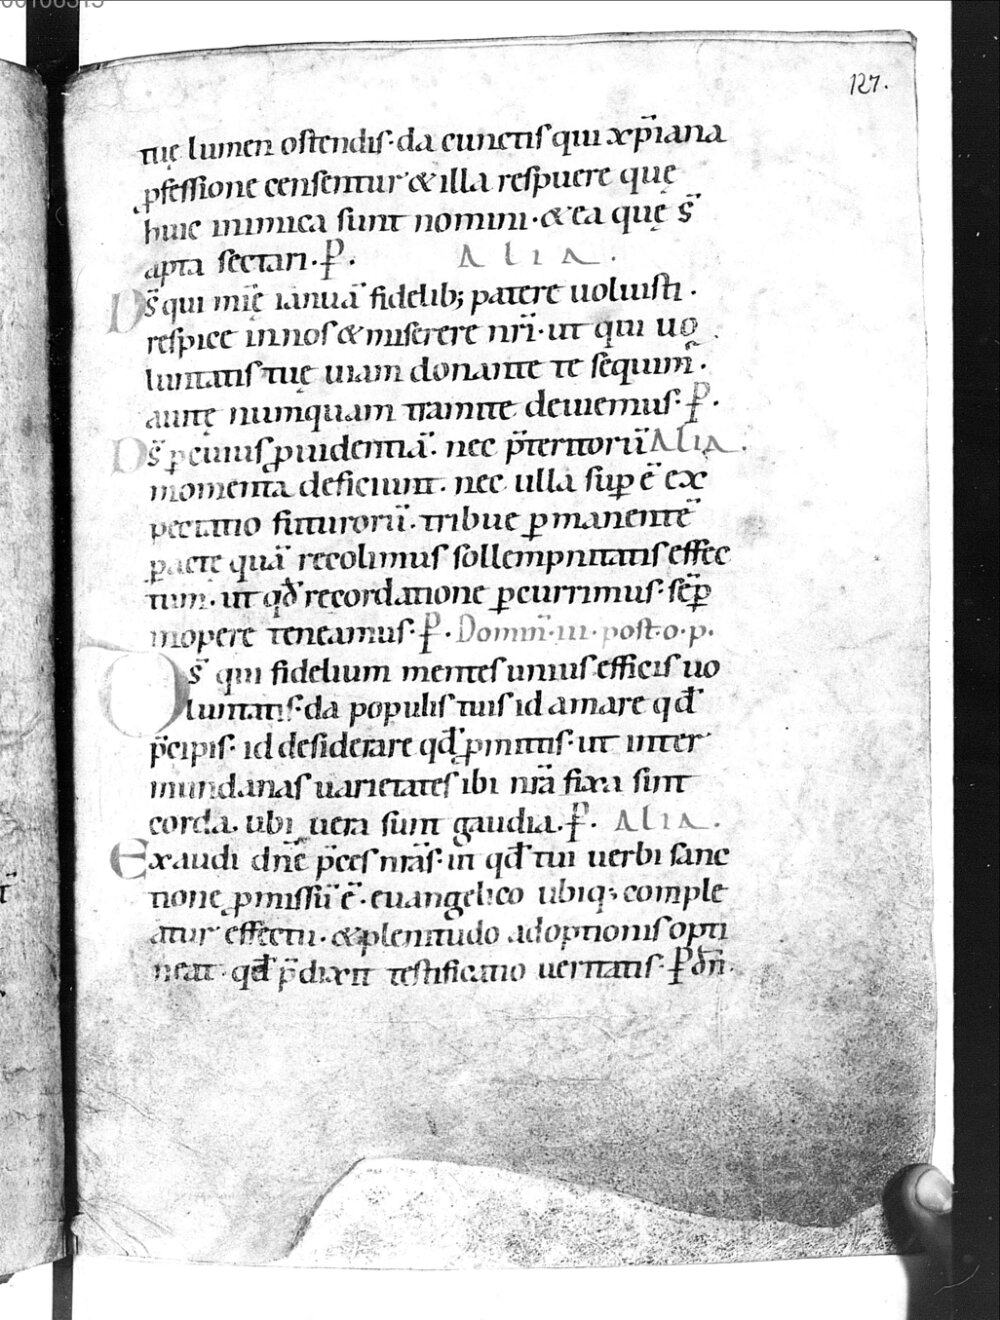 127.
tuę lumen ostendis· da cunctis qui xp̄iana
ꝓfessione censentur & illa respuere quę
huic inimica sunt nomini· & ea quę s̄
apta sectari· ꝑ. ALIA.
Ds̄ qui mię̄ ianuā fidelib; patere uoluisti.
respice in nos & miserere nr̄i· ut qui uo
luntatis tuę uiam donante te sequim̄.
a uitę numquam tramite deuiemus· ꝑ.
Ds̄ ꝑ cuius ꝓuidentiā· nec p̄teritorū ALIA.
momenta deficiunt· nec ulla suꝑ ē ex
pectatio futurorū· tribue ꝑmanentē
pacte quā recolimus sollempnitatis effec
tum· ut qđ recordatione ꝑcurrimus· sēꝑ
in opere teneamus· ꝑ. Domin̄· iii· post· o· p.
Ds̄ qui fidelium mentes unius efficis uo
luntatis· da populis tuis id amare qđ
p̄cipis· id desiderare qđ ꝓmittis· ut inter
mundanas uarietates ibi nr̄a fixa sint
corda· ubi uera sunt gaudia. ꝑ. ALIA.
Exaudi dn̄e p̄ces nr̄as· in qđ tui uerbi sanc
tione ꝓmissū ē· euangelico ubiq; comple
atur effectu· & plenitudo adoptionis opti
neat· qđ p̄dixit testificatio ueritatis· ꝑ dn̄.